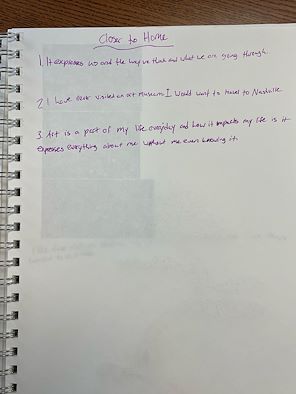 Closer to Home
1. It expresses us and the way we think and what we are going through.
2. I have never visited an art museum I would want to travel to Nashville
3. Art is a part of my life everyday and how it impacts my life is it
expresses everything about me without me even knowing it.